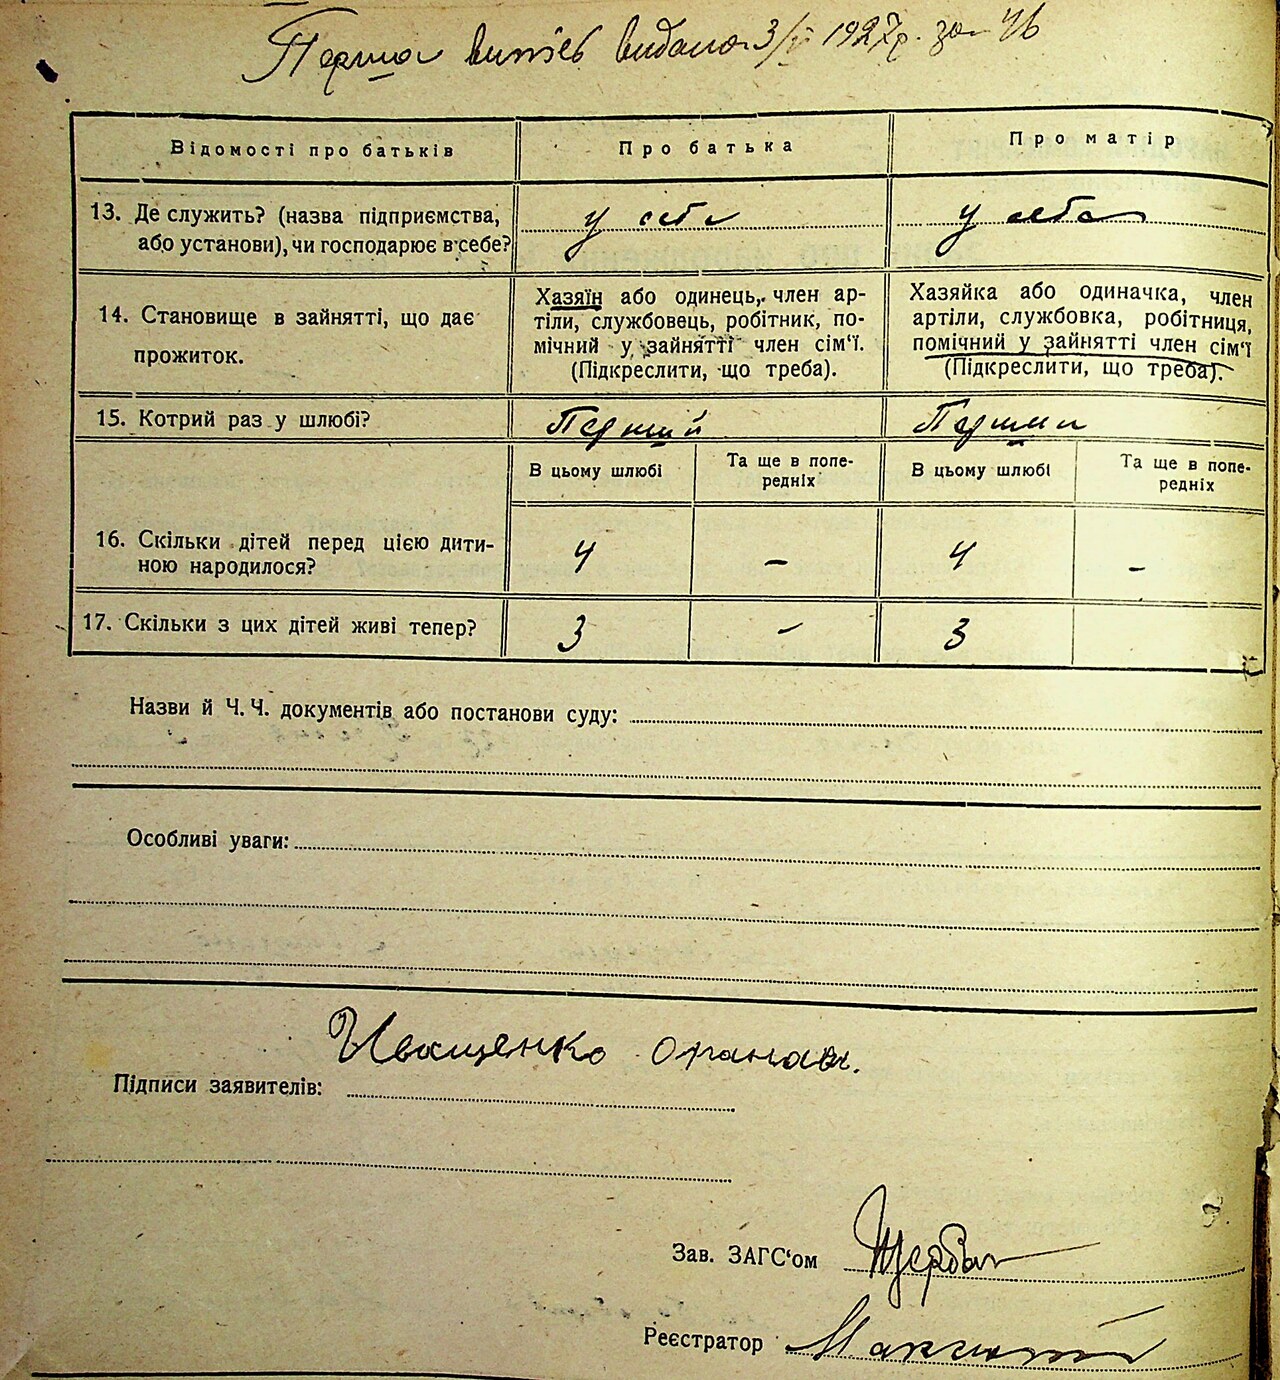 Перша виписъ видана 3/V 1927р. за 46
Відомості про батьків
Про батька
Про матір
13. Де служить? (назва підприємства,
або установи), чи господарює в себе?
у себе
у себе
14. Становище в зайнятті, що дає
прожиток.
Хазяїн або одинець, член ар-
тіли, службовець, робітник, по-
мічний у зайнятті член сім‘ї.
(Підкреслити, що треба).
Хазяйка або одиначка, член
артіли, службовка, робітниця,
помічний у зайнятті член сім‘ї
(Підкреслити, що треба).
15. Котрий раз у шлюбі?
Перший
Перший
В цьому шлюбі
Та ще в попе-
редніх
В цьому шлюбі
Та ще в попе-
редніх
16. Скільки дітей перед цією дити-
ною народилося?
4
–
4
–
17. Скільки з цих дітей живі тепер?
3
–
3
Назви й Ч. Ч. документів або постанови суду:
Особливі уваги:
Иващенко
Підписи заявителів:
Зав. ЗАГС‘ом
Реєстратор